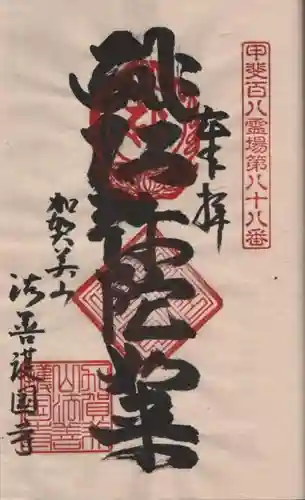 甲斐百八霊場第八十八番
奉拝
阿弥陀如来
加賀美山
法善護国寺